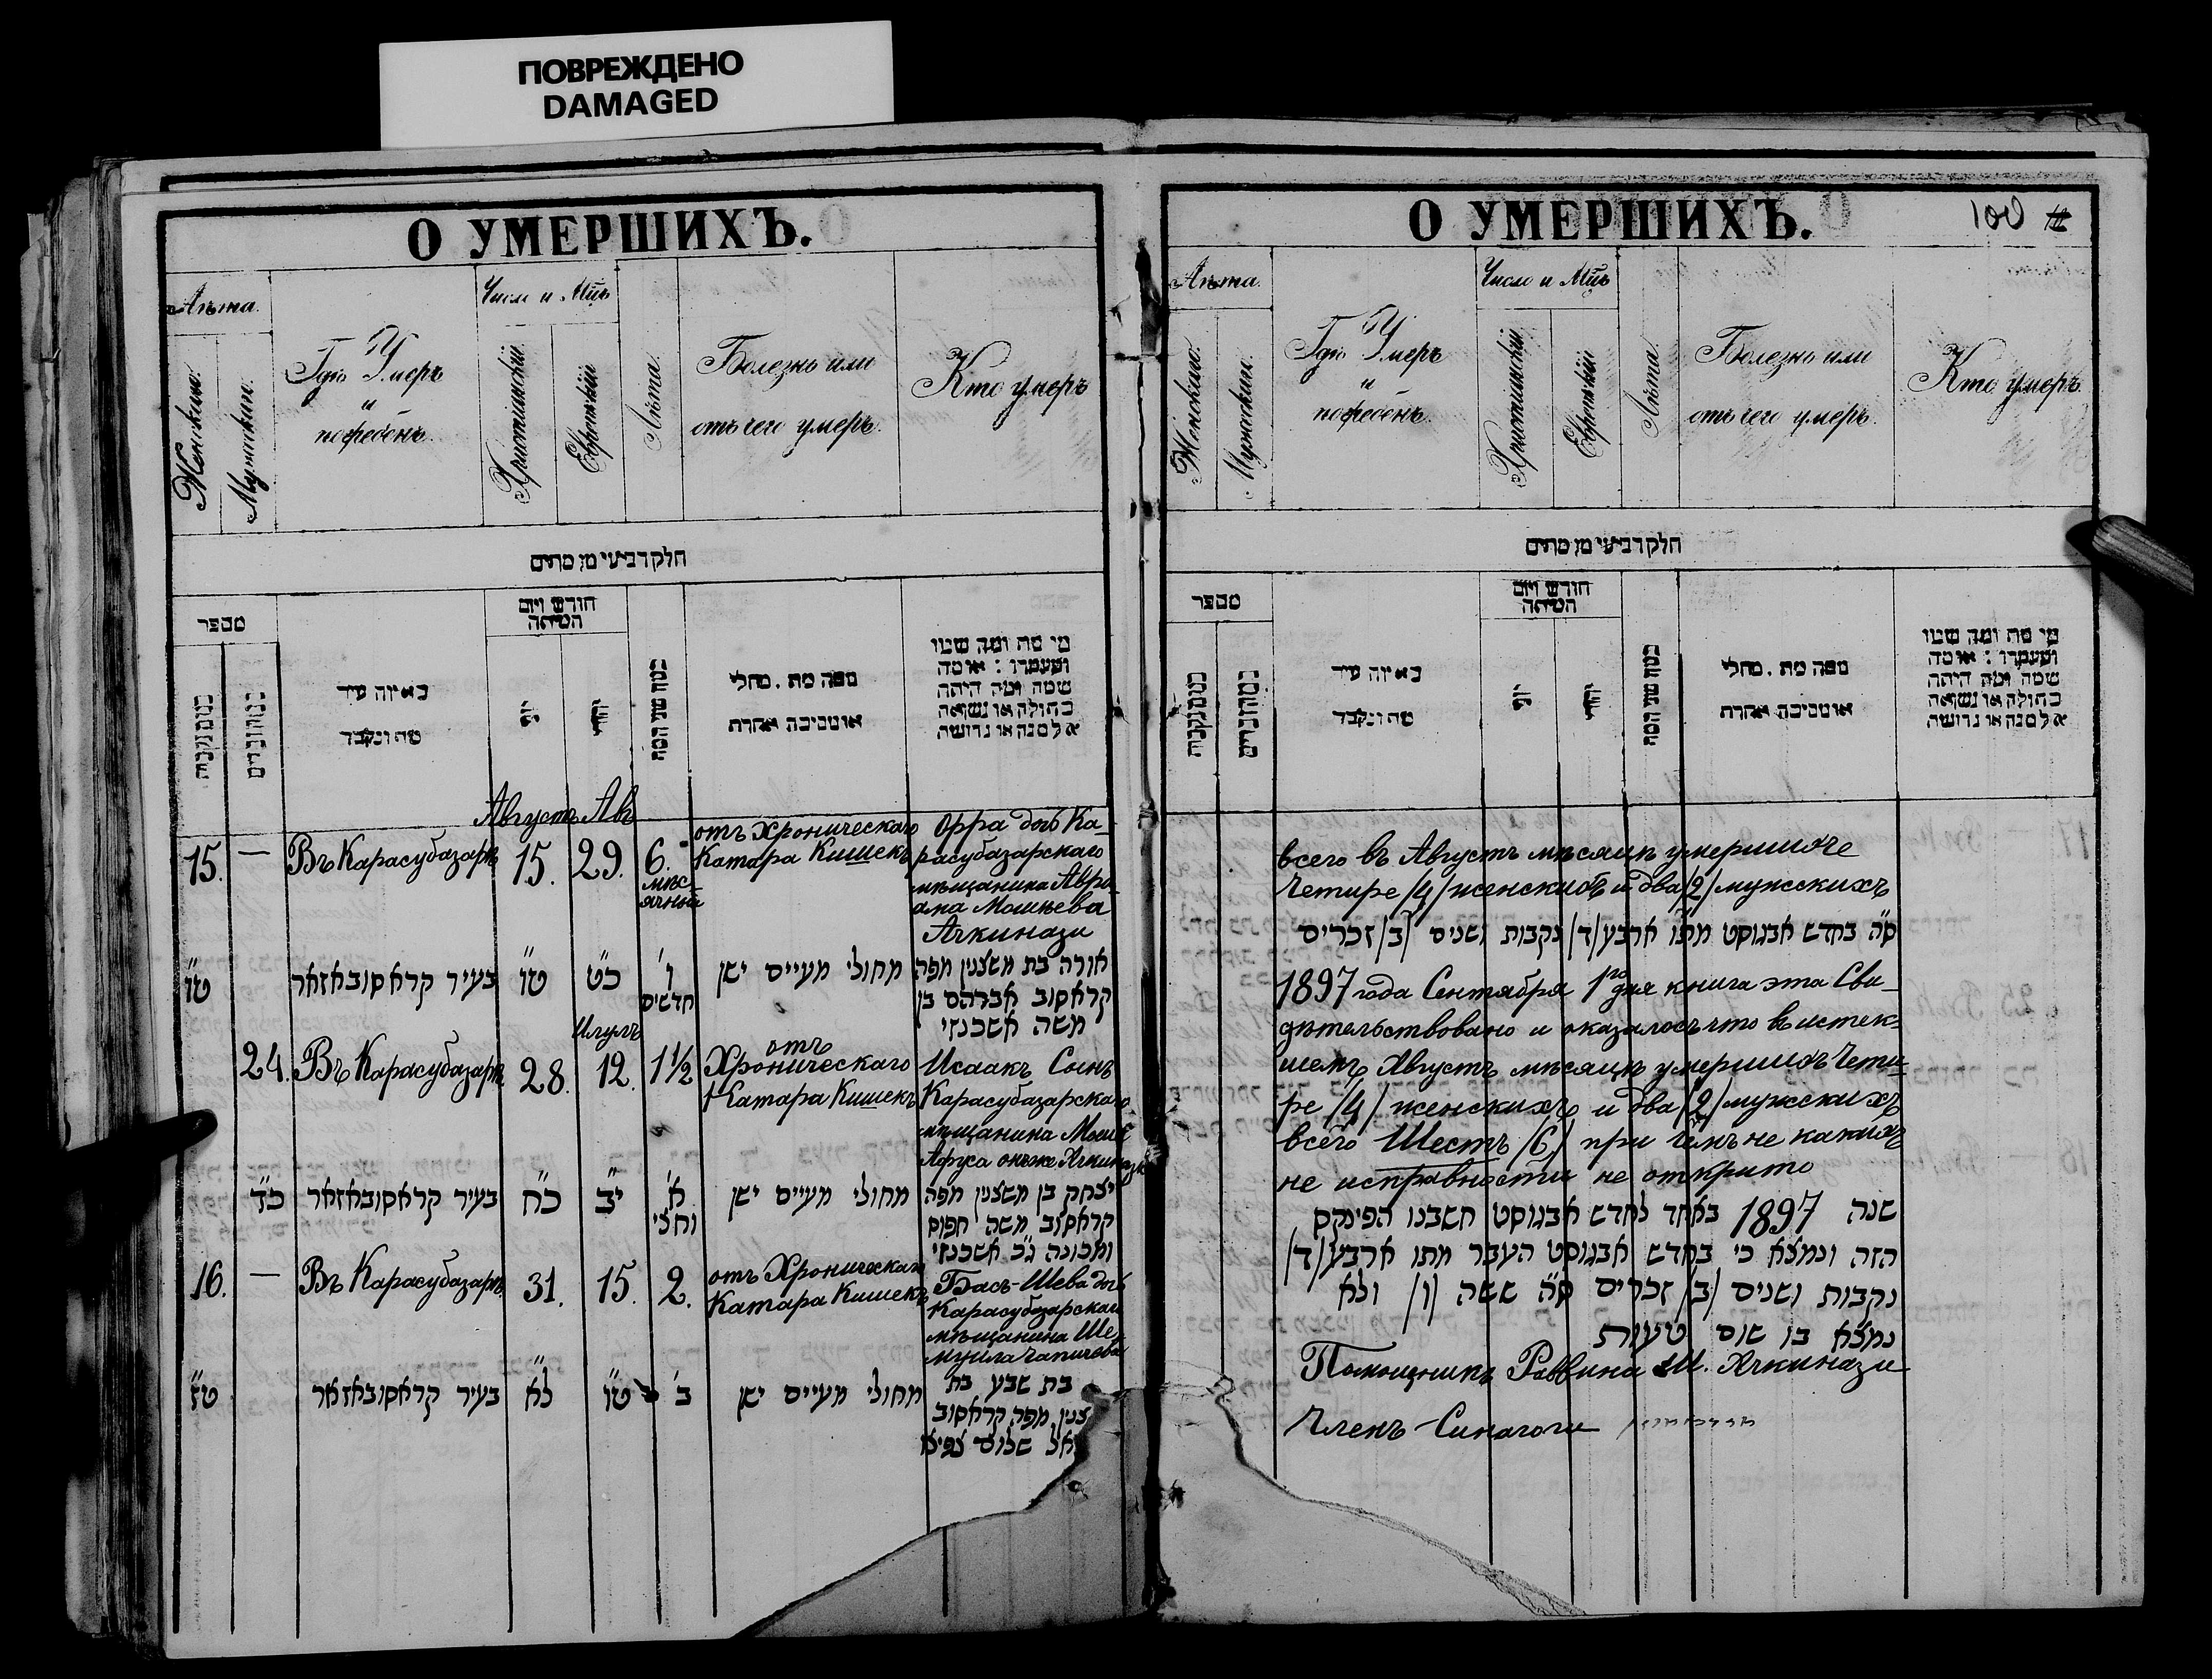 ПОВРЕЖДЕНО
DAMAGED
О УМЕРШИХЪ.
Лѣта.
Женскаго.
Мужескаго.
Гдѣ Умеръ
и
погребенъ.
Число и Мцъ
Христіанскій
Еврейскій
Лѣта.
Болезнь или
отъ чего умеръ.
Кто умеръ
חלק רביעי מן מתים
מספר
באיזה עיר
מת ונקבר
חודש ויום
המיתה
ממה מת . מחלי
או מסיבה אחרת
מי מת ומה שמו
ומעמדו : או מה
שמה ומה היתה
בתולה או נשואה
אלמנה או גרושה
Августъ Авъ
15.
—
Въ Карасубазарѣ
15.
29.
6.
мѣс-
ячной
отъ Хроническаго
Катара Кишекъ
Орра дочь Ка-
расубазарскаго
мѣщанина Авра-
ама Мошѣева
Ачкинази
ט״ו
בעיר קראסובאזאר
ט״ו
כ״ט
ו׳
חדשים
מחולי מעיים ישן
אורה בת משצנין מפה
קראסוב אברהם בן
משה אשכנזי
Илулъ
24.
Въ Карасубазарѣ
28.
12.
1½
отъ
Хроническаго
Катара Кишекъ
Исаакъ Сынъ
Карасубазарскаго
мѣщанина Моше
Афуса онъже Ачкинази
כ״ד
בעיר קראסובאזאר
כ״ח
י״ב
א׳
וחצי
מחולי מעיים ישן
יצחק בן משצנין מפה
קראסוב משה חפוס
ומכונה ג״כ אשכנזי
16.
—
Въ Карасубазарѣ
31.
15.
2.
отъ Хроническаго
Катара Кишекъ
Басъ-Шева дочь
Карасубазарскаго
мѣщанина Ше-
муила Чапичева
ט״ז
בעיר קראסובאזאר
ל״א
ט״ו
ב׳
מחולי מעיים ישן
בת שבע בת
צנין מפה קראסוב
אל שלום צפיצ
О УМЕРШИХЪ.
100
Лѣта.
Женскаго.
Мужескаго.
Гдѣ Умеръ
и
погребенъ.
Число и Мцъ
Христіанскій
Еврейскій
Лѣта.
Болезнь или
отъ чего умеръ.
Кто умеръ.
חלק רביעי מן מתים
מספר
באיזה עיר
מת ונקבר
חודש ויום
המיתה
ממה מת . מחלי
או מסיבה אחרת
מי מת ומה שמו
ומעמדו : או מה
שמה ומה היתה
בתולה או נשואה
אלמנה או גרושה
всего въ Августъ мѣсяцѣ умершихъ
Четире /4/ женскихъ и два /2/ мужскихъ
ס״ה בחדש אבגוסט מתו ארבע /ד/ נקבות ושנים /ב/ זכרים
1897 года Сентября 1го дня книга эта Сви-
дѣтельствовано и оказалось что въ истек-
шемъ Августъ мѣсяцѣ умершихъ Чети-
ре /4/ женскихъ и два /2/ мужскихъ
всего Шесть /6/ при чемъ не какихъ
не исправности не открито
שנה 1897 באחד לחדש אבגוסט חשבנו הפינקס
הזה ונמצא כי בחדש אבגוסט העבר מתו ארבע /ד/
נקבות ושנים /ב/ זכרים ס״ה ששה /ו/ ולא
נמצא בו שום טעות
Помощникъ Раввина М. Ачкинази
Членъ Синагоги